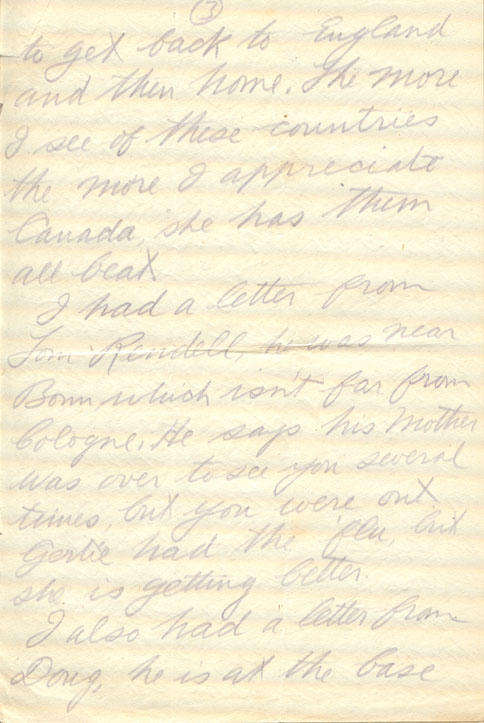 3
to get back to England
and then home. The more
I see of these countries
the more I appreciate
Canada, she has them
all beat
I had a letter from
Tom Rendell, he was near
Bonn which isn't far from
Cologne. He says his Mother
was over to see you several
times, but you were out
Gertie had the flu, but
she is getting better.
I also had a letter from
Doug, he is at the base